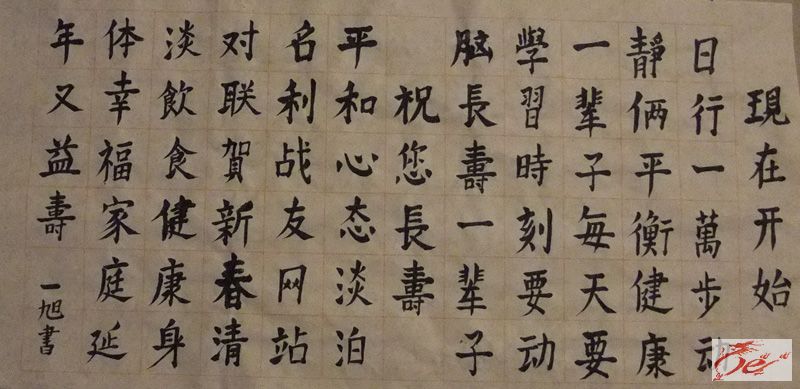 現在开始
日行一萬步动
靜俩平衡健康
一輩子每天要
學習時刻要动
脑長壽一輩子
祝您長壽
平和心态淡泊
名利战友网站
对联賀新春清
淡飲食健康身
体幸福家庭延
年又益壽
一旭書